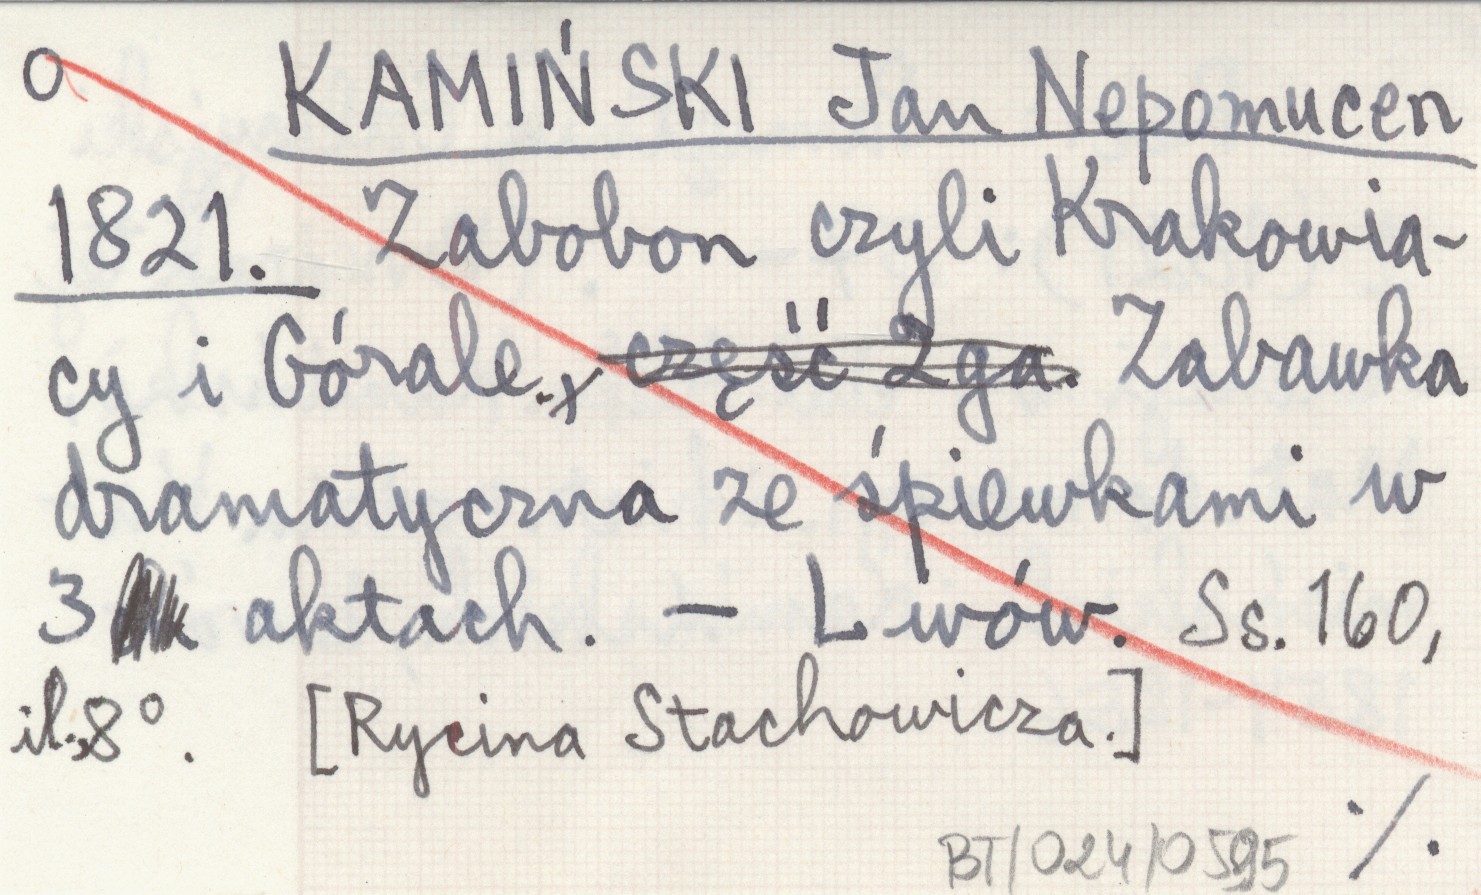 O KAMIŃSKI Jan Nepomucen
1821. Zabobon czyli Krakowia-
cy i Górale.x część 2ga. Zabawka
dramatyczna ze śpiewkami w
3 aktach. - Lwów. Ss. 160,
il., 8°. [Rycina Stachowicza.]
·/.
BT/024/0595